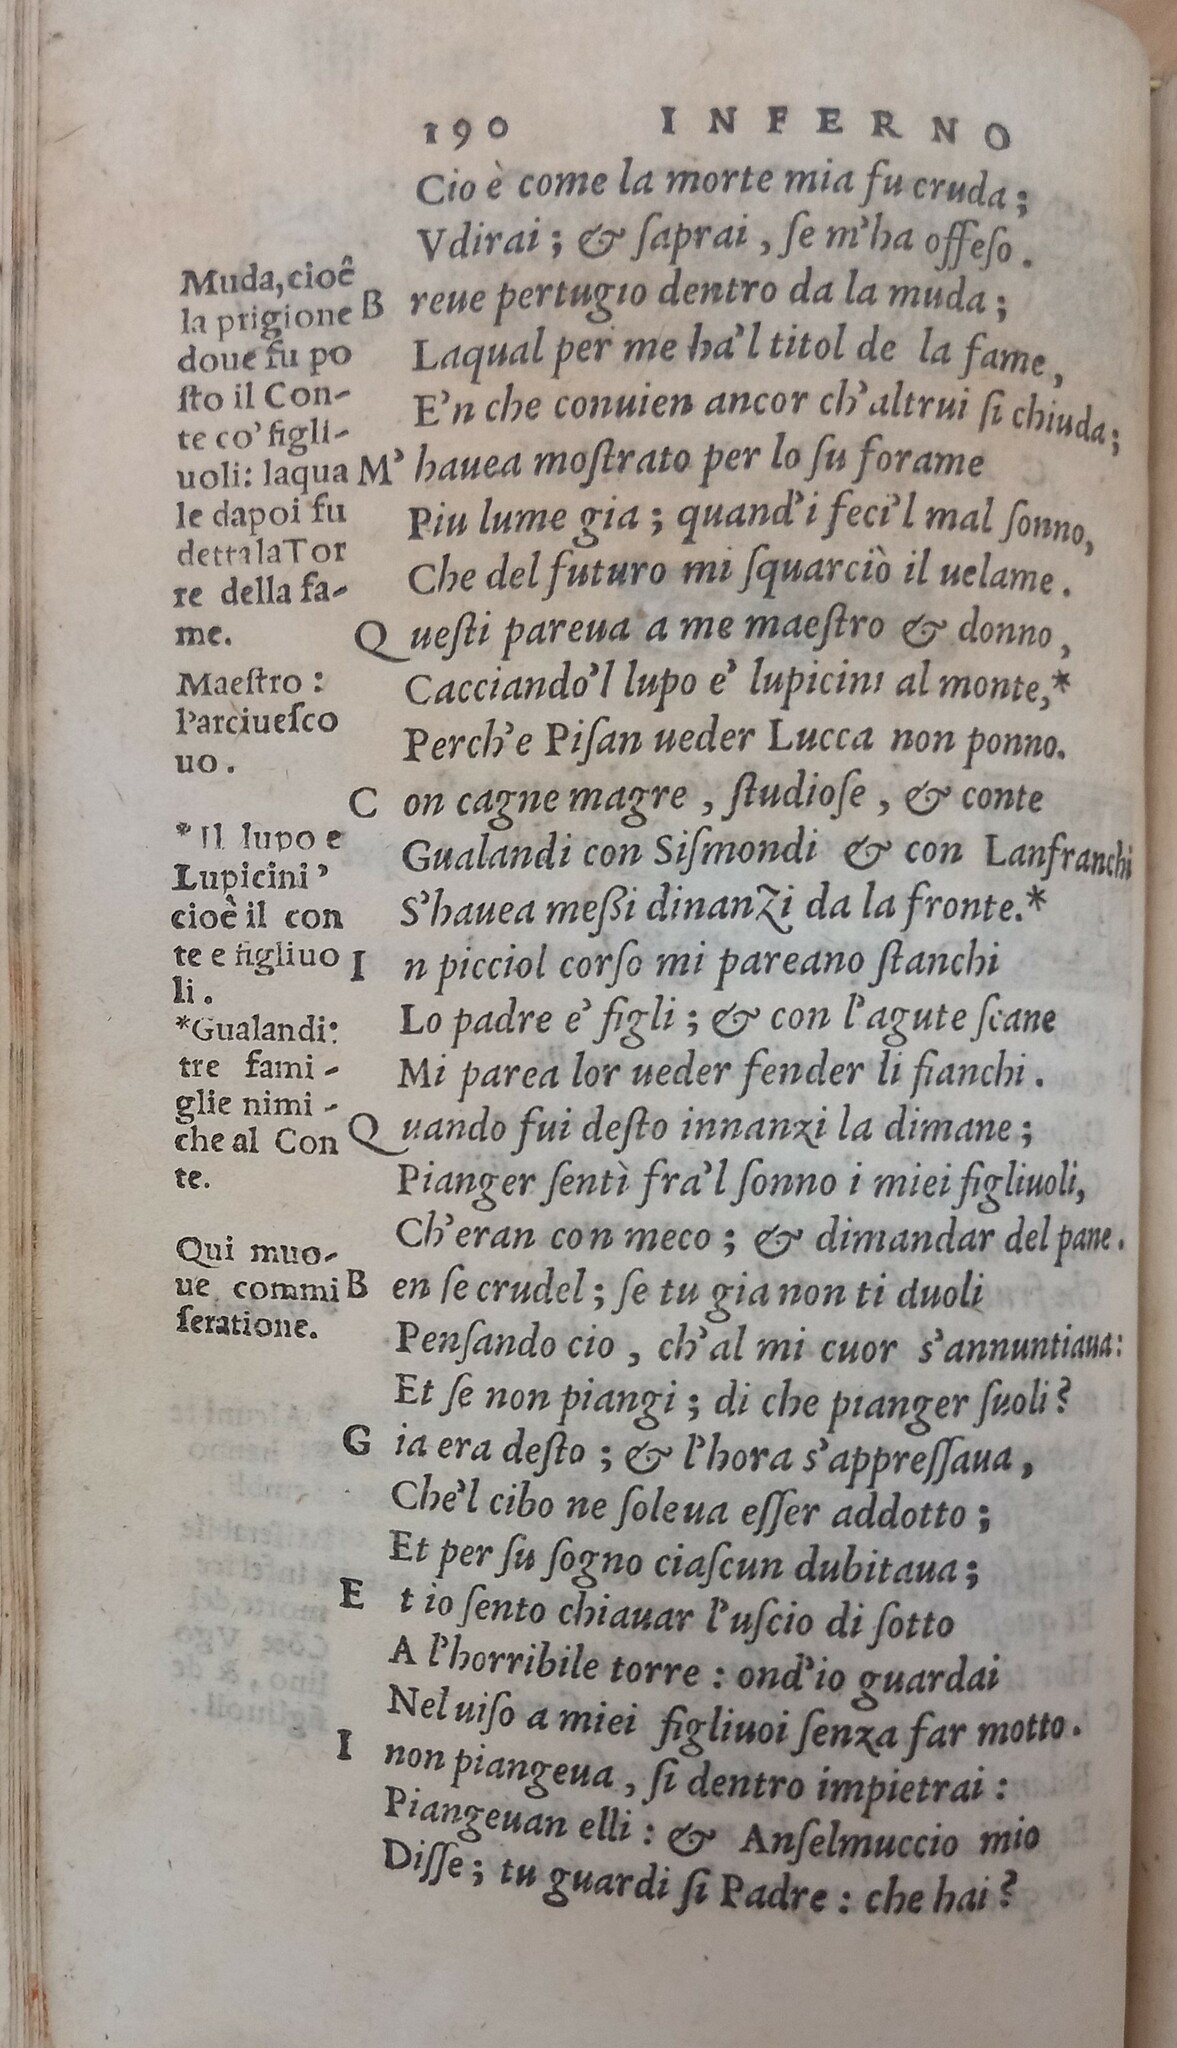 190 INFERNO
Cio è come la morte mia fu cruda;
Vdirai; & ſaprai, ſe m'ha offeſo.
B reue pertugio dentro da la muda;
Laqual per me ha'l titol de la fame,
E'n che conuien ancor ch'altrui ſi chiuda;
M' hauea moſtrato per lo ſu forame
Piu lume gia; quand'i feci'l mal ſonno,
Che del futuro mi ſquarciò il uelame.
Q ueſti pareua a me maeſtro & donno,
Cacciando'l lupo e' lupicini al monte,*
Perch'e Piſan ueder Lucca non ponno.
C on cagne magre, ſtudioſe, & conte
Gualandi con Siſmondi & con Lanfranchi
S'hauea meßi dinanzi da la fronte.*
I n picciol corſo mi pareano ſtanchi
Lo padre e' figli; & con l'agute ſcane
Mi parea lor ueder fender li fianchi.
Q uando fui deſto innanzi la dimane;
Pianger ſentì fra'l ſonno i miei figliuoli,
Ch'eran con meco; & dimandar del pane.
B en ſe crudel; ſe tu gia non ti duoli
Penſando cio, ch'al mi cuor s'annuntiaua:
Et ſe non piangi; di che pianger ſuoli?
G ia era deſto; & l'hora s'appreſſaua,
Che'l cibo ne ſoleua eſſer addotto;
Et per ſu ſogno ciaſcun dubitaua;
E t io ſento chiauar l'uſcio di ſotto
A l'horribile torre: ond'io guardai
Nel uiſo a miei figliuoi ſenza far motto.
I non piangeua, ſi dentro impietrai:
Piangeuan elli: & Anſelmuccio mio
Diſſe; tu guardi ſi Padre: che hai?
Muda, cioê
la prigione
doue fu po
ſto il Con-
te co' figli-
uoli: laqua
le dapoi fu
detta la Tor
re della fa-
me.
Maeſtro:
l'arciueſco
uo.
*Il lupo e
Lupicini'
cioè il con
te e figliuo
li.
*Gualandi:
tre fami-
glie nimi-
che al Con
te.
Qui muo-
ue commi
ſeratione.